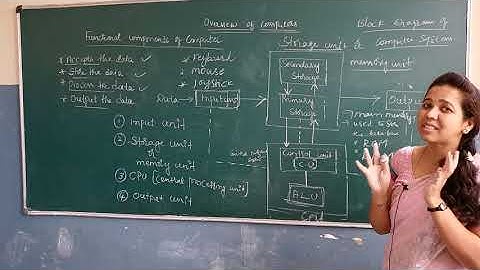 Overview of Computers
Block Diagram of
Computer System
Functional components of Computer
* Accepts the data ✓
* Store the data ✓
* Process the data ✓
* Output the data
* Keyboard
* mouse
* Joystick
Storage unit &
memory unit
Secondary
Storage
Primary
Storage
Data
Inputting
Output
① Input unit
② Storage unit
or
memory unit
③ CPU (Central processing unit)
④ Output unit
Control unit
C.U
ALU
CPU
main memory
used to
RAM